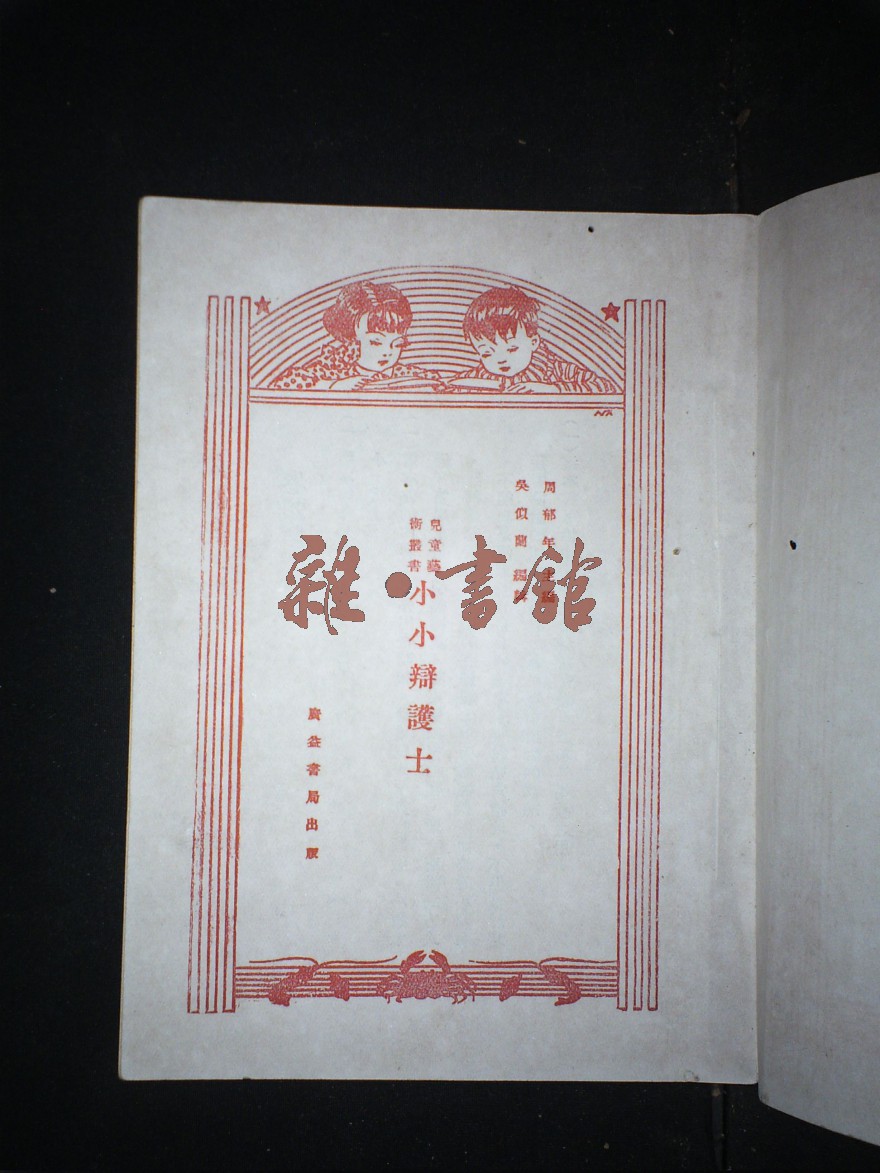 周郁年主編
吳似蘭編
兒童藝
術叢書
小小辯護士
廣益書局出版
雜·書館